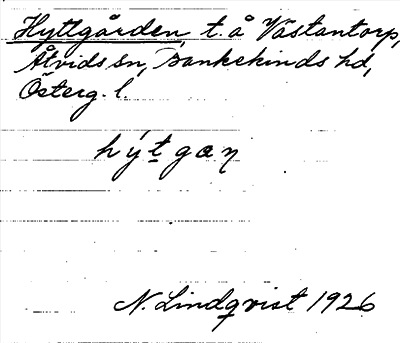 Hyttgården, t. å Västantorp,
Åtvids sn, Bankekinds hd,
Österg. l.
hýtgaη
N. Lindqvist 1926